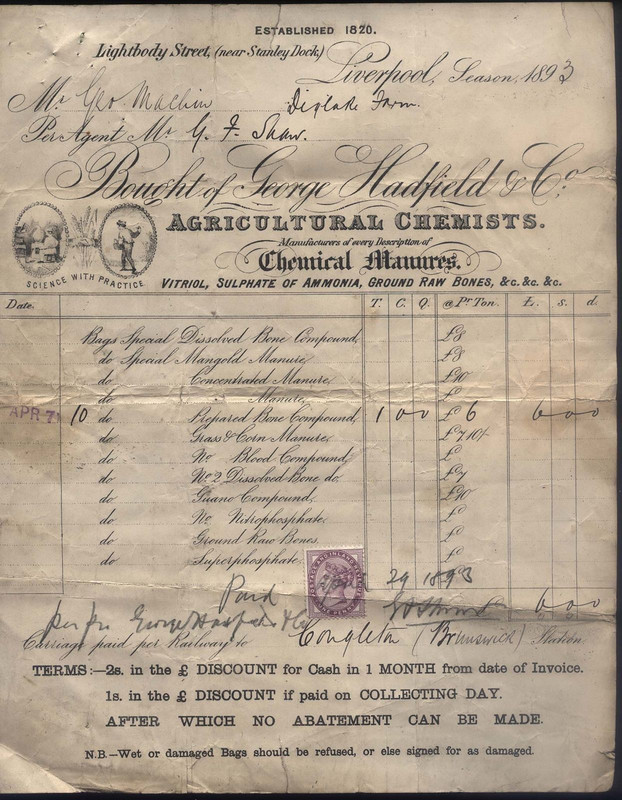 ESTABLISHED 1820.
Lightbody Street, (near Stanley Dock,)
Liverpool, Season, 1893
Mr Geo Machin Diglake Farm.
Per Agent Mr G. F. Shaw.
Bought of George Hadfield & Co.
AGRICULTURAL CHEMISTS.
Manufacturers of every Description of
Chemical Manures.
SCIENCE WITH PRACTICE
VITRIOL, SULPHATE OF AMMONIA, GROUND RAW BONES, &c. &c. &c.
Date. T. C. Q. @ Pr Ton. £. s. d.
Bags Special Dissolved Bone Compound, £8
do Special Mangold Manure, £8
do Concentrated Manure, £10
do Manure, £
APR 7 10 do Prepared Bone Compound, 1 0 0 £ 6 6 0 0
do Grass & Corn Manure, £7 10/
do No Blood Compound, £
do No 2 Dissolved Bone do. £7
do Guano Compound, £10
do No Nitrophosphate, £
do Ground Raw Bones. £
do Superphosphate, £
POSTAGE AND INLAND REVENUE
ONE PENNY
Paid April 29 1893
per pro George Hadfield & Co 6 0 0
Carriage paid per Railway to Congleton (Brunswick) Station
TERMS:—2s. in the £ DISCOUNT for Cash in 1 MONTH from date of Invoice.
1s. in the £ DISCOUNT if paid on COLLECTING DAY.
AFTER WHICH NO ABATEMENT CAN BE MADE.
N.B.—Wet or damaged Bags should be refused, or else signed for as damaged.